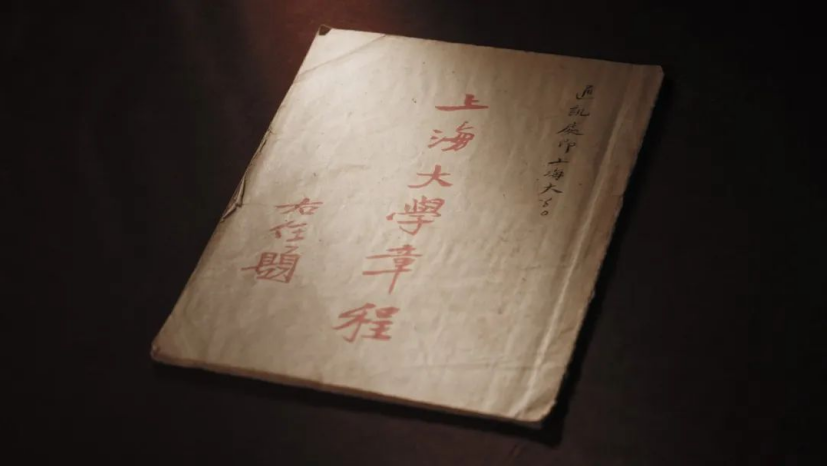 印上海大
上海大學章程
右任題